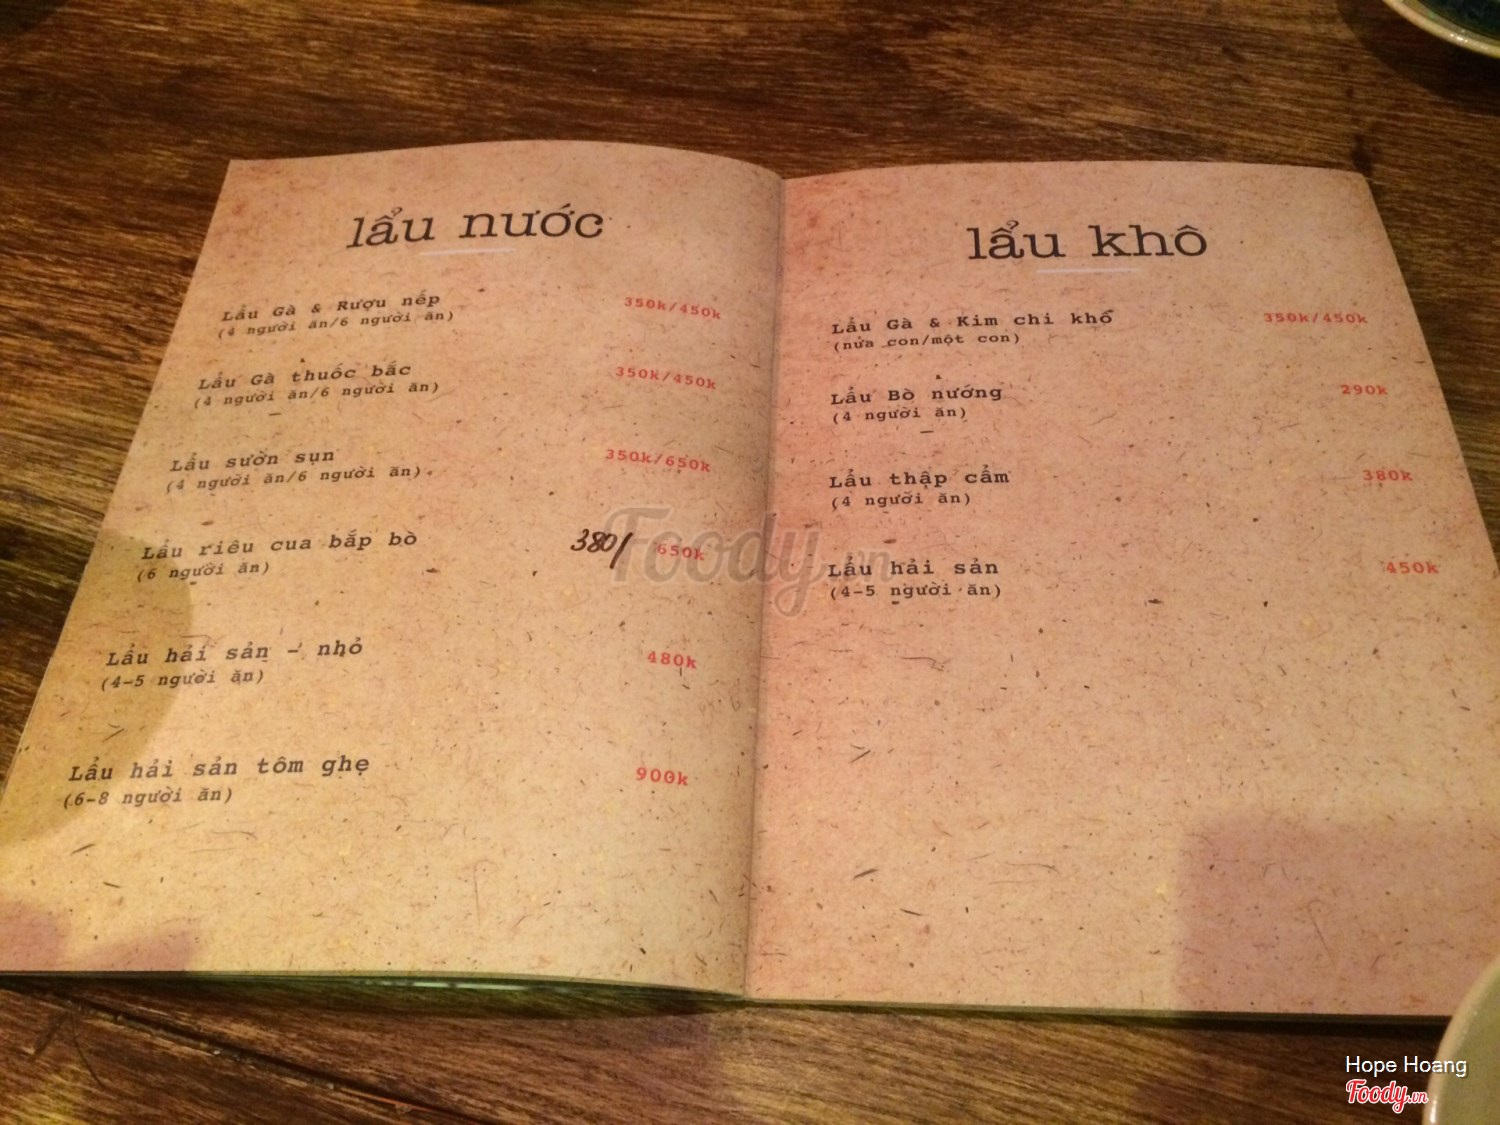 lẩu nước
Lẩu Gà & Rượu nếp 350k/450k
(4 người ăn/6 người ăn)
Lẩu Gà thuốc bắc 350k/450k
(4 người ăn/6 người ăn)
Lẩu sườn sụn 350k/650k
(4 người ăn/6 người ăn)
Lẩu riêu cua bắp bò 380/ 650k
(6 người ăn)
Lẩu hải sản - nhỏ 480k
(4-5 người ăn)
Lẩu hải sản tôm ghẹ 900k
(6-8 người ăn)
lẩu khô
Lẩu Gà & Kim chi khô 350k/450k
(nửa con/một con)
Lẩu Bò nướng 290k
(4 người ăn)
Lẩu thập cẩm 380k
(4 người ăn)
Lẩu hải sản 450k
(4-5 người ăn)
Foody.vn
Hope Hoang
Foody.vn